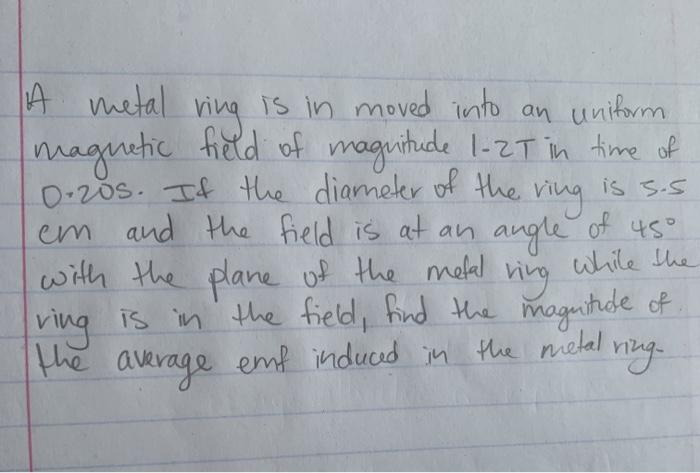 A metal ring is in moved into an uniform
magnetic field of magnitude 1-2T in time of
0.20s. If the diameter of the ring is 5.5
cm and the field is at an angle of 45°
with the plane of the metal ring while the
ring is in the field, find the magnitude of
the average emf induced in the metal ring.